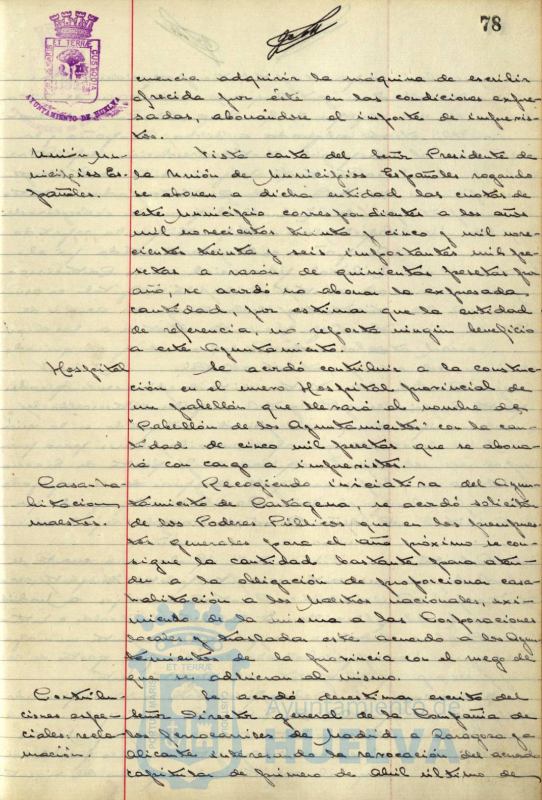 78
ET TERRÆ
CUSTODIA
AYUNTAMIENTO DE HUELVA
cuencia adquirir la máquina de escribir
ofrecida por éste en las condiciones expre-
sadas, abonándose el importe de imprevis-
tos.
Unión Mu-
nicipios Es-
pañoles.
Vista carta del Señor Presidente de
la Unión de Municipios Españoles rogando
se abonen a dicha entidad las cuotas de
este Municipio correspondientes a los años
mil novecientos treinta y cinco y mil nove-
cientos treinta y seis importantes mil pe-
setas a razón de quinientas pesetas por
año, se acordó no abonar la expresada
cantidad, por estimar que la entidad
de referencia, no reporta ningún beneficio
a este Ayuntamiento.
Hospital
Se acordó contribuir a la construc-
ción en el nuevo Hospital provincial de
un pabellón que llevará el nombre de
"Pabellón de los Ayuntamientos" con la can-
tidad de cinco mil pesetas que se abona-
rá con cargo a imprevistos.
Casa-ha-
bitaciones
maestros.
Recogiendo iniciativa del Ayun-
tamiento de Cartagena, se acordó solicitar
de los Poderes Públicos que en los presupues-
tos generales para el año próximo se con-
signe la cantidad bastante para aten-
der a la obligación de proporcionar casa-
habitación a los Maestros nacionales, exi-
miendo de la misma a las Corporaciones
locales y trasladar este acuerdo a los Ayun-
tamientos de la provincia con el ruego de
que se adhieran al mismo.
Contribu-
ciones espe-
ciales: recla-
mación.
Se acordó desestimar escrito del
Señor Director general de la Compañía de
los Ferrocarriles de Madrid a Zaragoza y a
Alicante interesando la revocación del acuerdo
capitular de primero de Abril último de
Ayuntamiento de
HUELVA